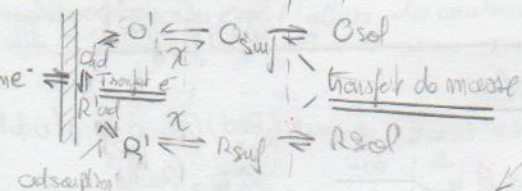 O' ⇌ Osurf ⇌ Osol
Oad χ
ne⁻ ⇌ Transfert e⁻ transfert de masse
R'ad χ
R' ⇌ Rsurf ⇌ Rsol
adsorption